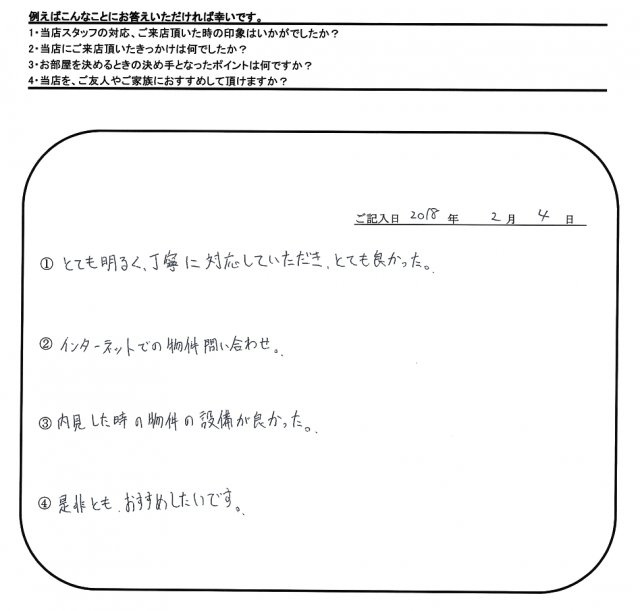 例えばこんなことにお答えいただければ幸いです。
1・当店スタッフの対応、ご来店頂いた時の印象はいかがでしたか？
2・当店にご来店頂いたきっかけは何でしたか？
3・お部屋を決めるときの決め手となったポイントは何ですか？
4・当店を、ご友人やご家族におすすめして頂けますか？
ご記入日 2018 年 2 月 4 日
① とても明るく、丁寧に対応していただき、とても良かった。
② インターネットでの物件問い合わせ。
③ 内見した時の物件の設備が良かった。
④ 是非とも、おすすめしたいです。